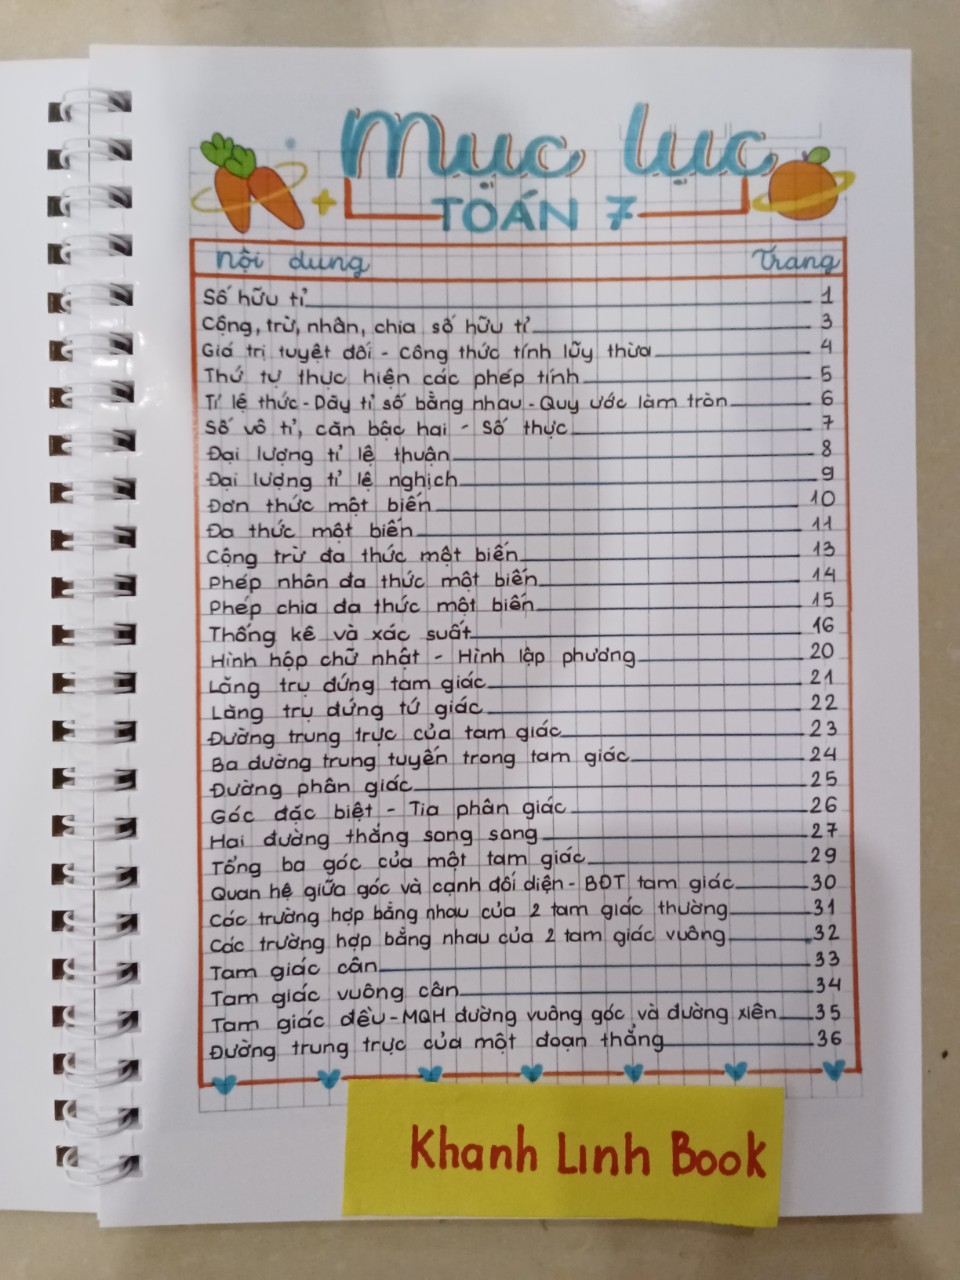 Mục lục
TOÁN 7
Nội dung Trang
Số hữu tỉ 1
Cộng, trừ, nhân, chia số hữu tỉ 3
Giá trị tuyệt đối - Công thức tính lũy thừa 4
Thứ tự thực hiện các phép tính 5
Tỉ lệ thức - Dãy tỉ số bằng nhau - Quy ước làm tròn 6
Số vô tỉ, căn bậc hai - Số thực 7
Đại lượng tỉ lệ thuận 8
Đại lượng tỉ lệ nghịch 9
Đơn thức một biến 10
Đa thức một biến 11
Cộng trừ đa thức một biến 13
Phép nhân đa thức một biến 14
Phép chia đa thức một biến 15
Thống kê và xác suất 16
Hình hộp chữ nhật - Hình lập phương 20
Lăng trụ đứng tam giác 21
Lăng trụ đứng tứ giác 22
Đường trung trực của tam giác 23
Ba đường trung tuyến trong tam giác 24
Đường phân giác 25
Góc đặc biệt - Tia phân giác 26
Hai đường thẳng song song 27
Tổng ba góc của một tam giác 29
Quan hệ giữa góc và cạnh đối diện - BĐT tam giác 30
Các trường hợp bằng nhau của 2 tam giác thường 31
Các trường hợp bằng nhau của 2 tam giác vuông 32
Tam giác cân 33
Tam giác vuông cân 34
Tam giác đều - MQH đường vuông góc và đường xiên 35
Đường trung trực của một đoạn thẳng 36
Khanh Linh Book